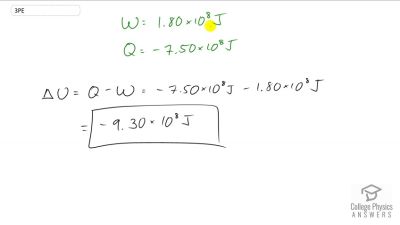 3PE
W = 1.80×10⁸ J
Q = -7.50×10⁸ J
ΔU = Q - W = -7.50×10⁸ J - 1.80×10⁸ J
= -9.30×10⁸ J
College Physics
ANSWERS